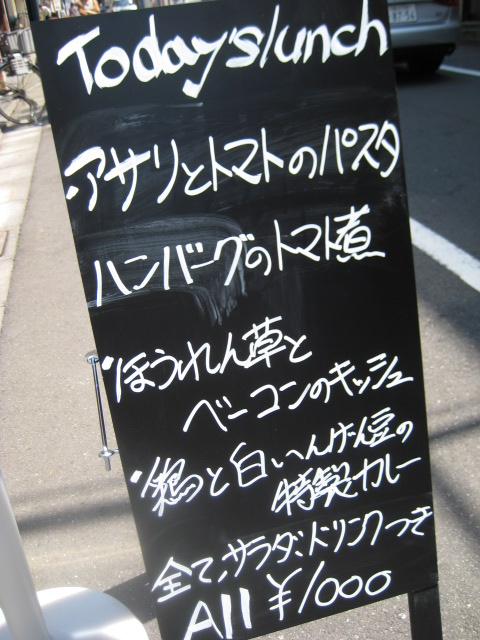 Today's lunch
・アサリとトマトのパスタ
ハンバーグのトマト煮
・ほうれん草と
ベーコンのキッシュ
・鶏と白いんげん豆の
特製カレー
全て、サラダ、ドリンクつき
All ¥1000